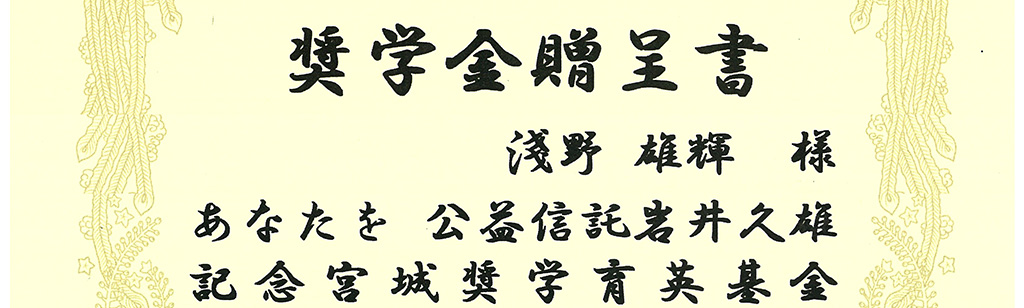 奨学金贈呈書
淺野 雄輝 様
あなたを 公益信託岩井久雄
記念宮城奨学育英基金